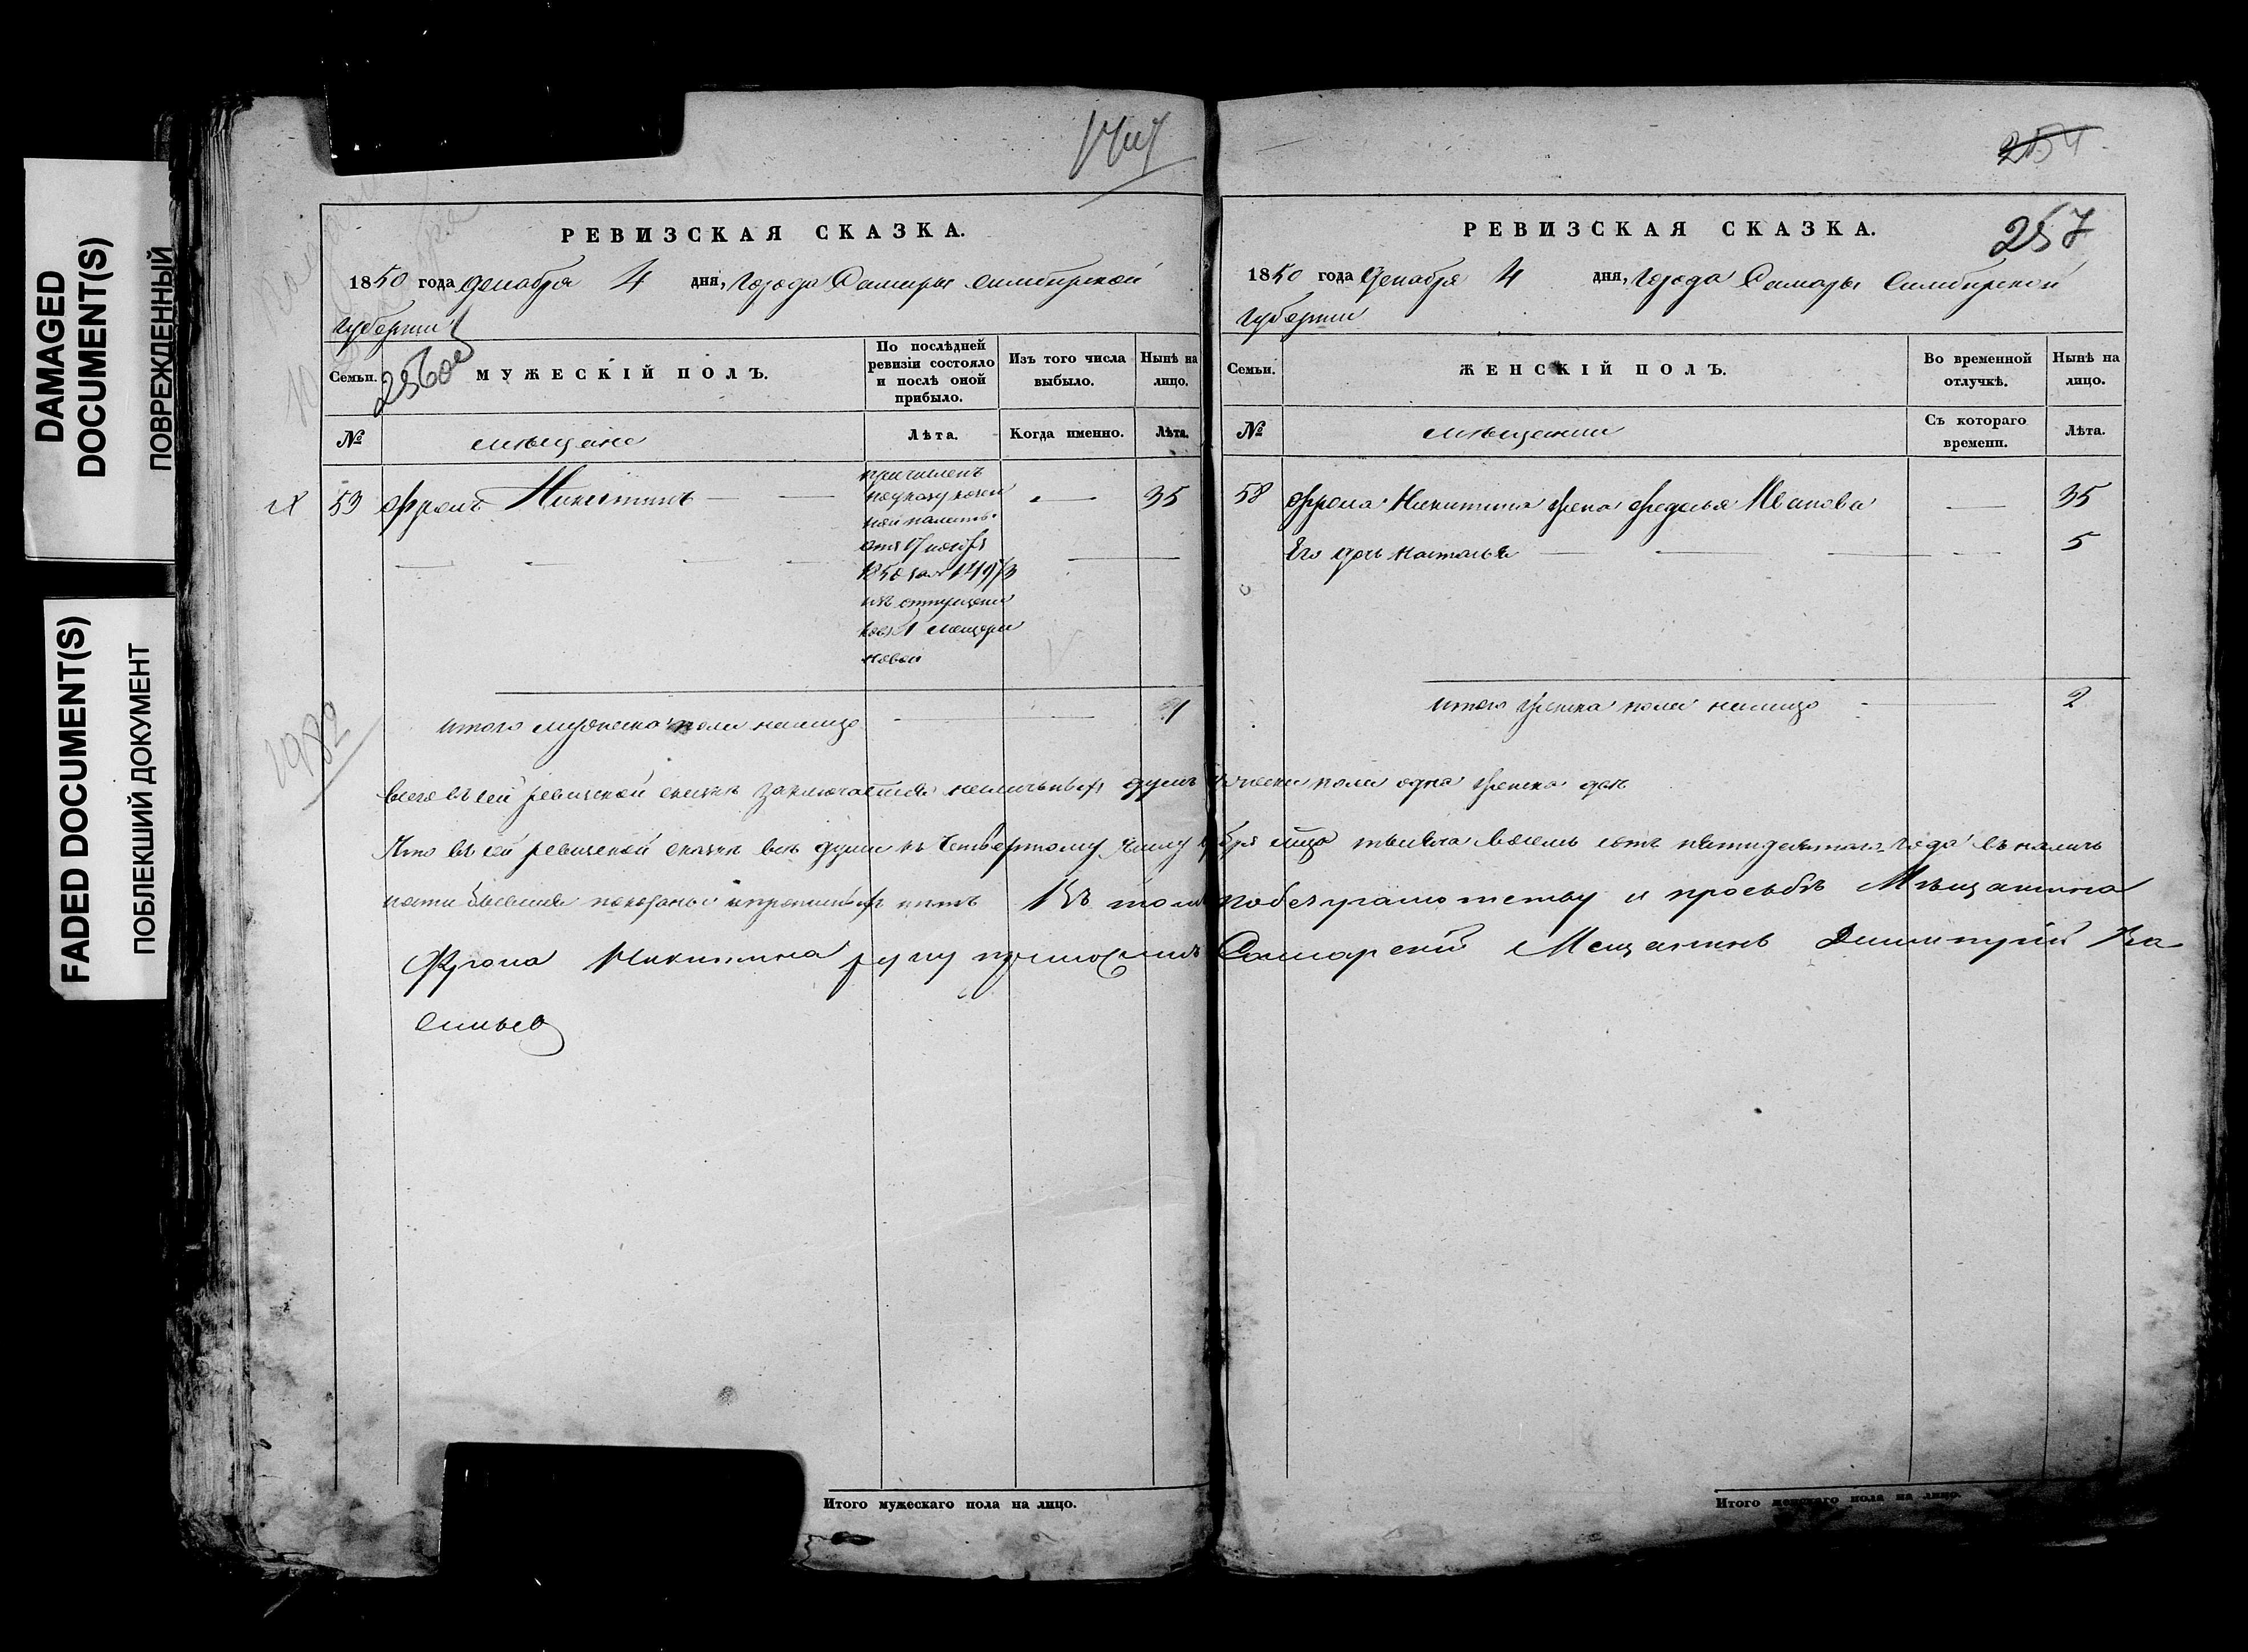 DAMAGED
DOCUMENT(S)
ПОВРЕЖДЕННЫЙ
FADED DOCUMENT(S)
ПОБЛЕКШИЙ ДОКУМЕНТ
1982
РЕВИЗСКАЯ СКАЗКА.
1850 года Декабря 4 дня, города Самары Симбирской
губернии
Семьи.
МУЖЕСКІЙ ПОЛЪ.
По послѣдней
ревизіи состояло
и послѣ оной
прибыло.
Изъ того числа
выбыло.
Нынѣ на
лицо.
№
мѣщане
Лѣта.
Когда именно.
Лѣта.
53 Фролъ Никитинъ 35
причисленъ
по указу казен
ной палаты
отъ 17 ноября
1850
изъ отпущени
новой
итого мужеска пола налицо 1
254
257
РЕВИЗСКАЯ СКАЗКА.
1850 года Декабря 4 дня, города Самары Симбирской
губернии
Семьи.
ЖЕНСКІЙ ПОЛЪ.
Во временной
отлучкѣ.
Нынѣ на
лицо.
№
мѣщанки
Съ котораго
времени.
Лѣта.
58 Фрола Никитина жена Федосья Иванова 35
Его дочь Наталья 5
итого женска пола налицо 2
всего въ сей ревизской сказкѣ заключается наличныхъ душъ мужеска пола одна женска двѣ
Что въ сей ревизской сказкѣ всѣ души къ четвертому числу Декабря мца тысяча восемь сотъ пятидесятаго года въ налич
ности показаны и прописныхъ нѣтъ Въ томъ по безграмотству и прозьбѣ Мѣщанина
Фрола Никитина руку приложилъ Самарскій Мещанинъ Димитрій Ва
сильев
Итого мужескаго пола на лицо.
Итого женскаго пола на лицо.